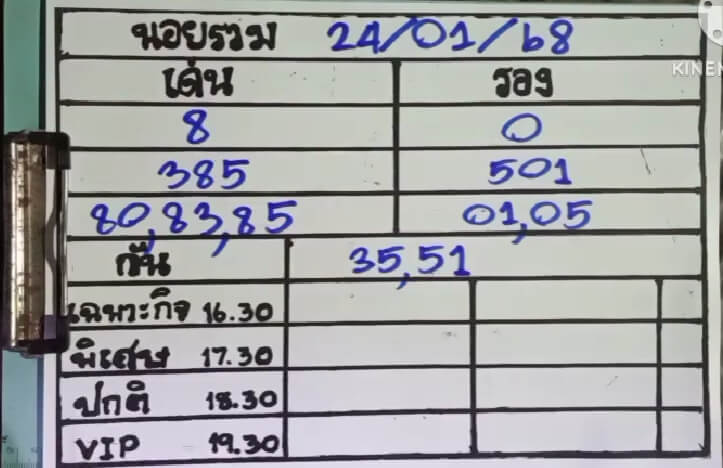 ฮอยรวม 24/01/68
เด่น รอง
8 0
385 501
80,83,85 01,05
กัน 35,51
เฉพาะกิจ 16.30
พิเศษ 17.30
ปกติ 18.30
VIP 19.30
KINEM